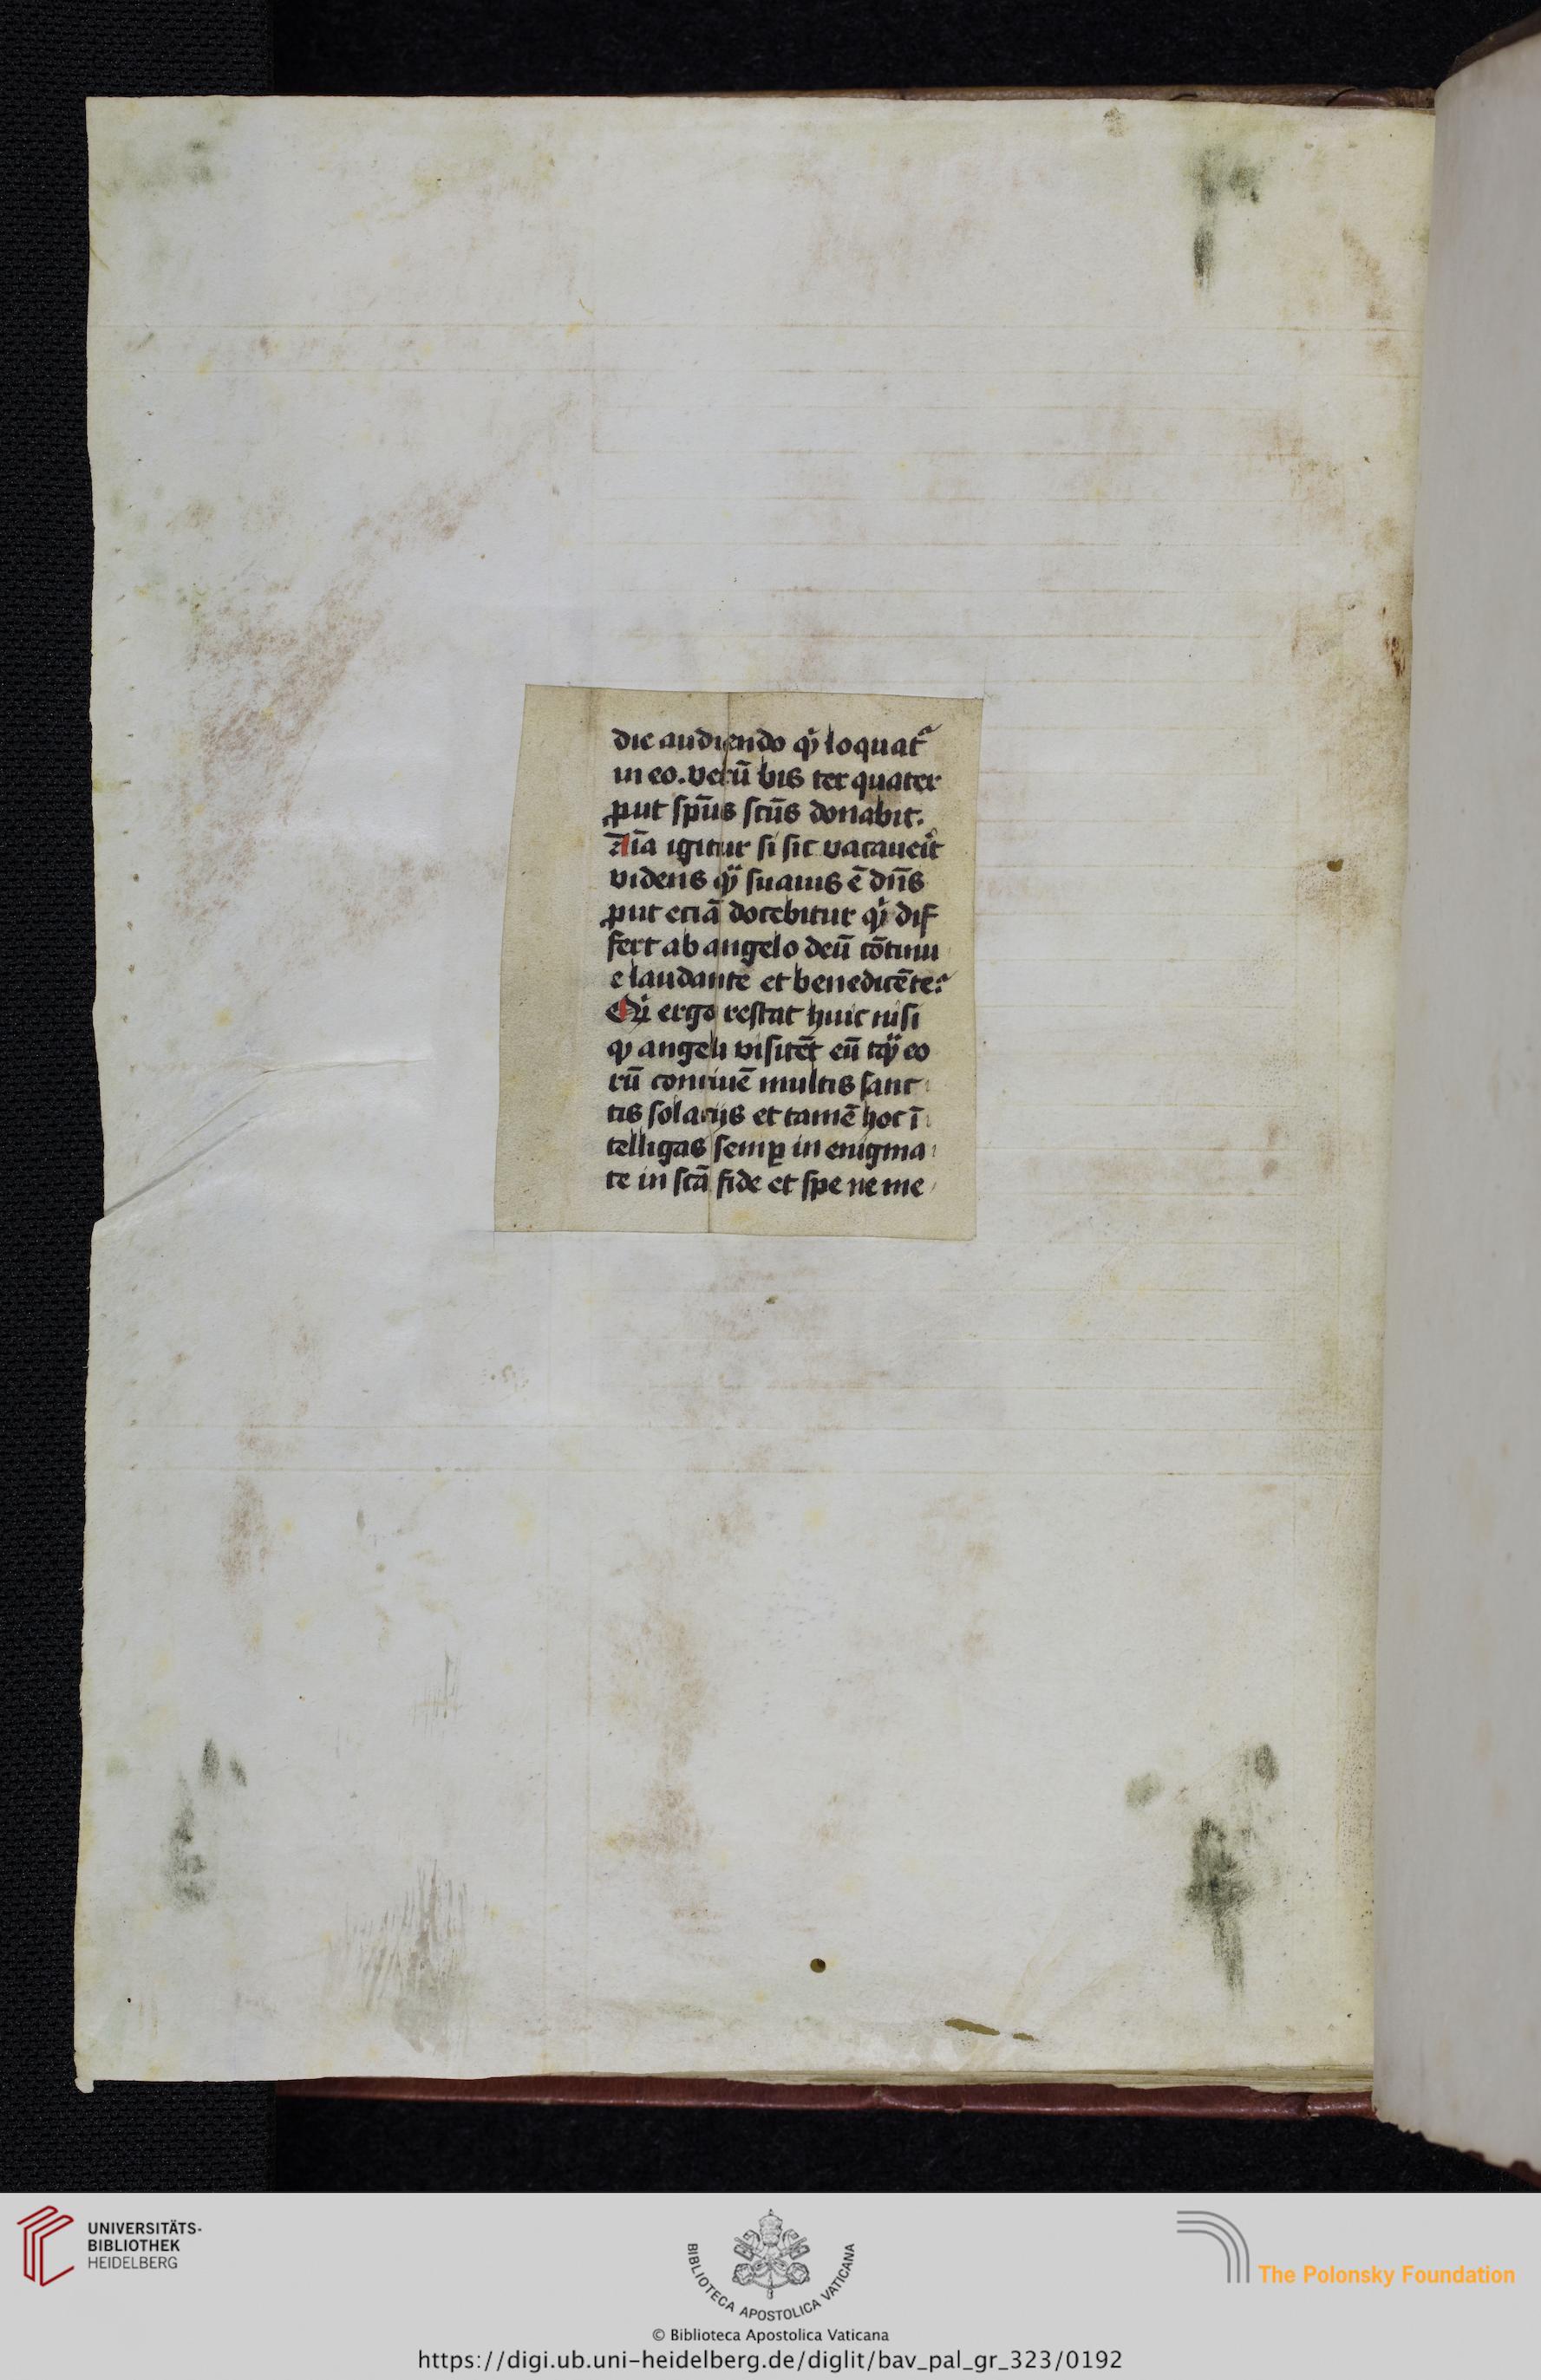 die audiendo qͥ loquatᷣ
in eo. verū bis ter quater
ꝓut sp̄us sc̄us donabit.
Aīa igitur si sic vacaueīt
videns suauis ē dn̄s
ꝓut eciā docebitur qͥ dif
fert ab angelo deū cōtinu
e laudante et benedicēte?
Qͥ ergo restat huic nisi
ꝙ angeli visitēt eū eo
rū conciuē multis sanc
tis solacijs et tamē hoc ī
telligas semꝑ in enigma
te in scā fide et spe ne me
UNIVERSITÄTS-
BIBLIOTHEK
HEIDELBERG
BIBLIOTECA APOSTOLICA VATICANA
The Polonsky Foundation
© Biblioteca Apostolica Vaticana
https://digi.ub.uni-heidelberg.de/diglit/bav_pal_gr_323/0192